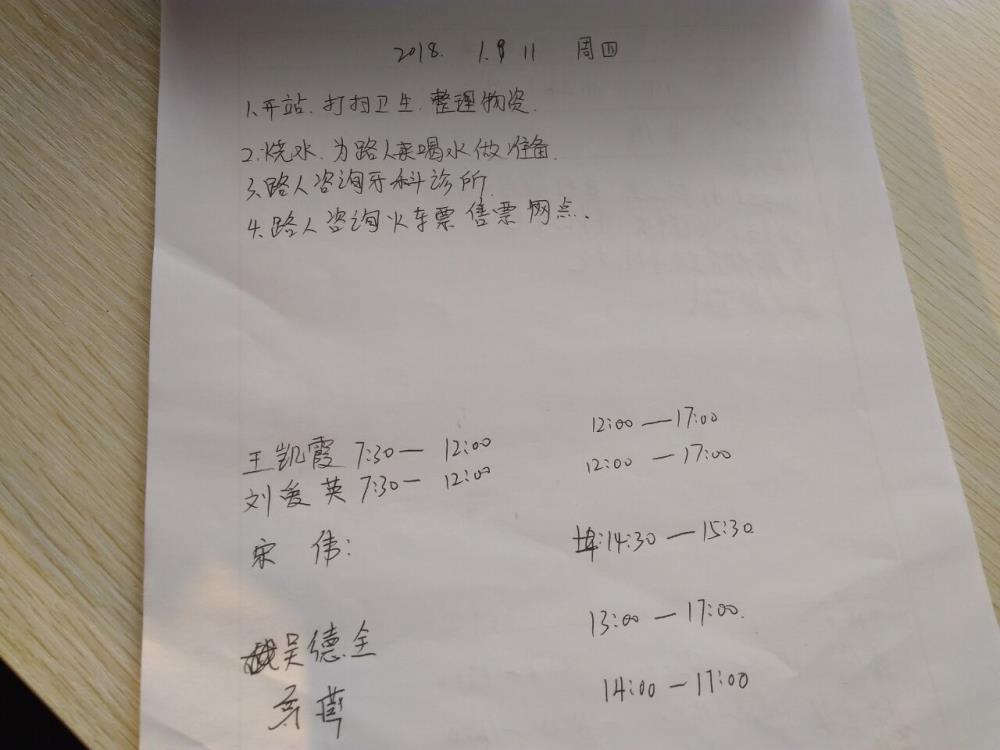 2018. 1. 11 周四
1.开站.打扫卫生.整理物资.
2.烧水.为路人来喝水做准备.
3.路人咨询牙科诊所.
4.路人咨询火车票售票网点.
王凯霞 7:30— 12:00 12:00 —17:00
刘爱英 7:30— 12:00 12:00 —17:00
宋 伟: 14:30 —15:30
吴德全 13:00 —17:00.
14:00 —17:00